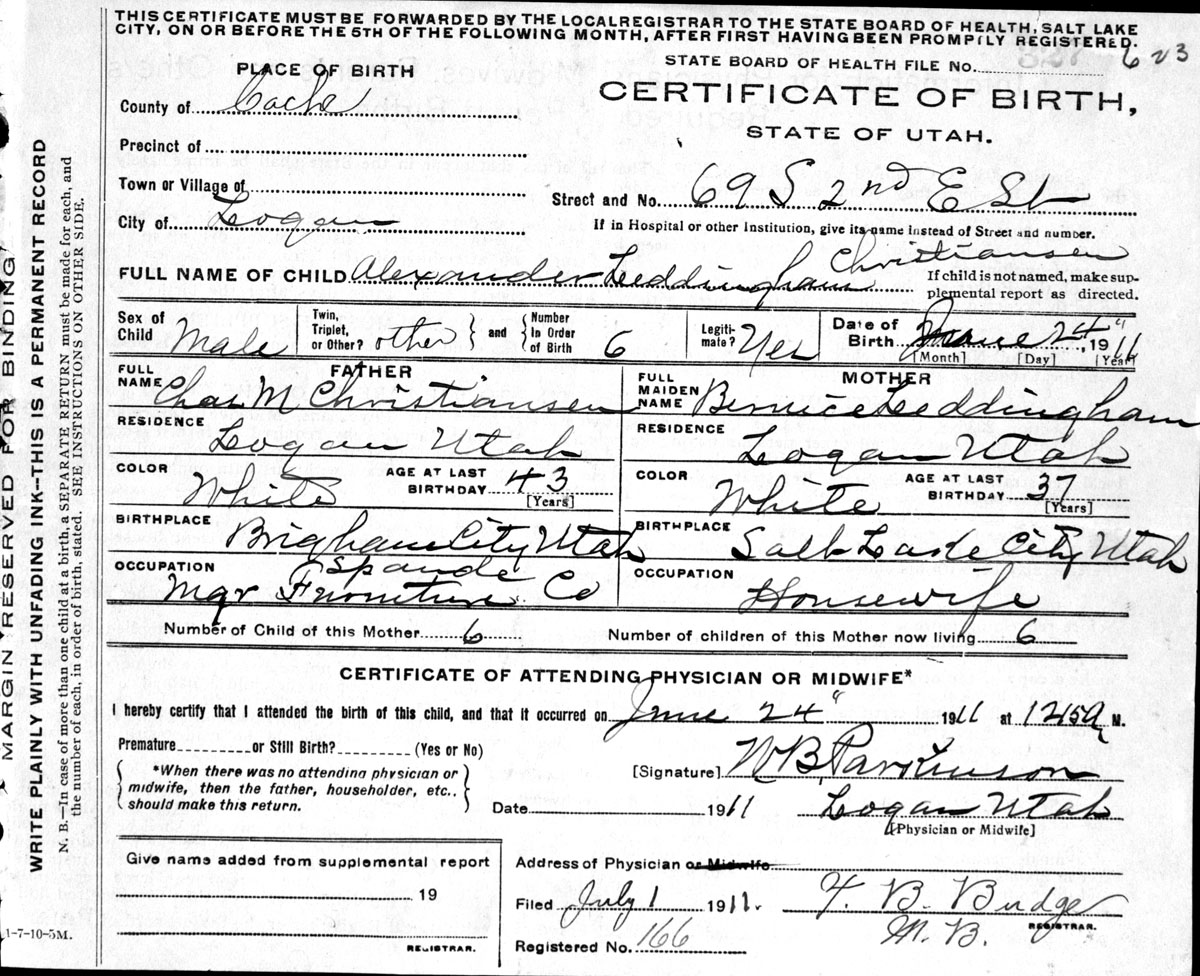 THIS CERTIFICATE MUST BE FORWARDED BY THE LOCAL REGISTRAR TO THE STATE BOARD OF HEALTH, SALT LAKE
CITY, ON OR BEFORE THE 5TH OF THE FOLLOWING MONTH, AFTER FIRST HAVING BEEN PROMPTLY REGISTERED.
PLACE OF BIRTH
STATE BOARD OF HEALTH FILE NO. 623
County of Cache
CERTIFICATE OF BIRTH,
STATE OF UTAH.
Precinct of
Town or Village of
Street and No. 69 S 2nd E St
City of Logan
If in Hospital or other Institution, give its name instead of Street and number.
FULL NAME OF CHILD Alexander Leddingham Christiansen
If child is not named, make sup-
plemental report as directed.
Sex of Child Male
Twin, Triplet, or Other? other and Number In Order of Birth 6
Legiti-mate? Yes
Date of Birth June 24" 1911
[Month] [Day] [Year]
FATHER
FULL NAME Chas M Christiansen
RESIDENCE Logan Utah
COLOR White AGE AT LAST BIRTHDAY 43 [Years]
BIRTHPLACE Brigham City Utah
OCCUPATION Mgr Spande Furniture Co
MOTHER
FULL MAIDEN NAME Bernice Leddingham
RESIDENCE Logan Utah
COLOR White AGE AT LAST BIRTHDAY 37 [Years]
BIRTHPLACE Salt Lake City Utah
OCCUPATION Housewife
Number of Child of this Mother 6 Number of children of this Mother now living 6
CERTIFICATE OF ATTENDING PHYSICIAN OR MIDWIFE*
I hereby certify that I attended the birth of this child, and that it occurred on June 24" 1911 at 1259 a M.
Premature or Still Birth? (Yes or No)
*When there was no attending physician or
midwife, then the father, householder, etc.,
should make this return.
[Signature] W B Parkinson
Date 1911 Logan Utah
[Physician or Midwife]
Give name added from supplemental report
19
REGISTRAR.
Address of Physician or Midwife
Filed July 1 1911. F. B. Budge
M. B. REGISTRAR.
Registered No. 166
1-7-10-5M.
MARGIN RESERVED FOR BINDING
WRITE PLAINLY WITH UNFADING INK—THIS IS A PERMANENT RECORD
N. B.—In case of more than one child at a birth, a SEPARATE RETURN must be made for each, and
the number of each, in order of birth, stated. SEE INSTRUCTIONS ON OTHER SIDE.